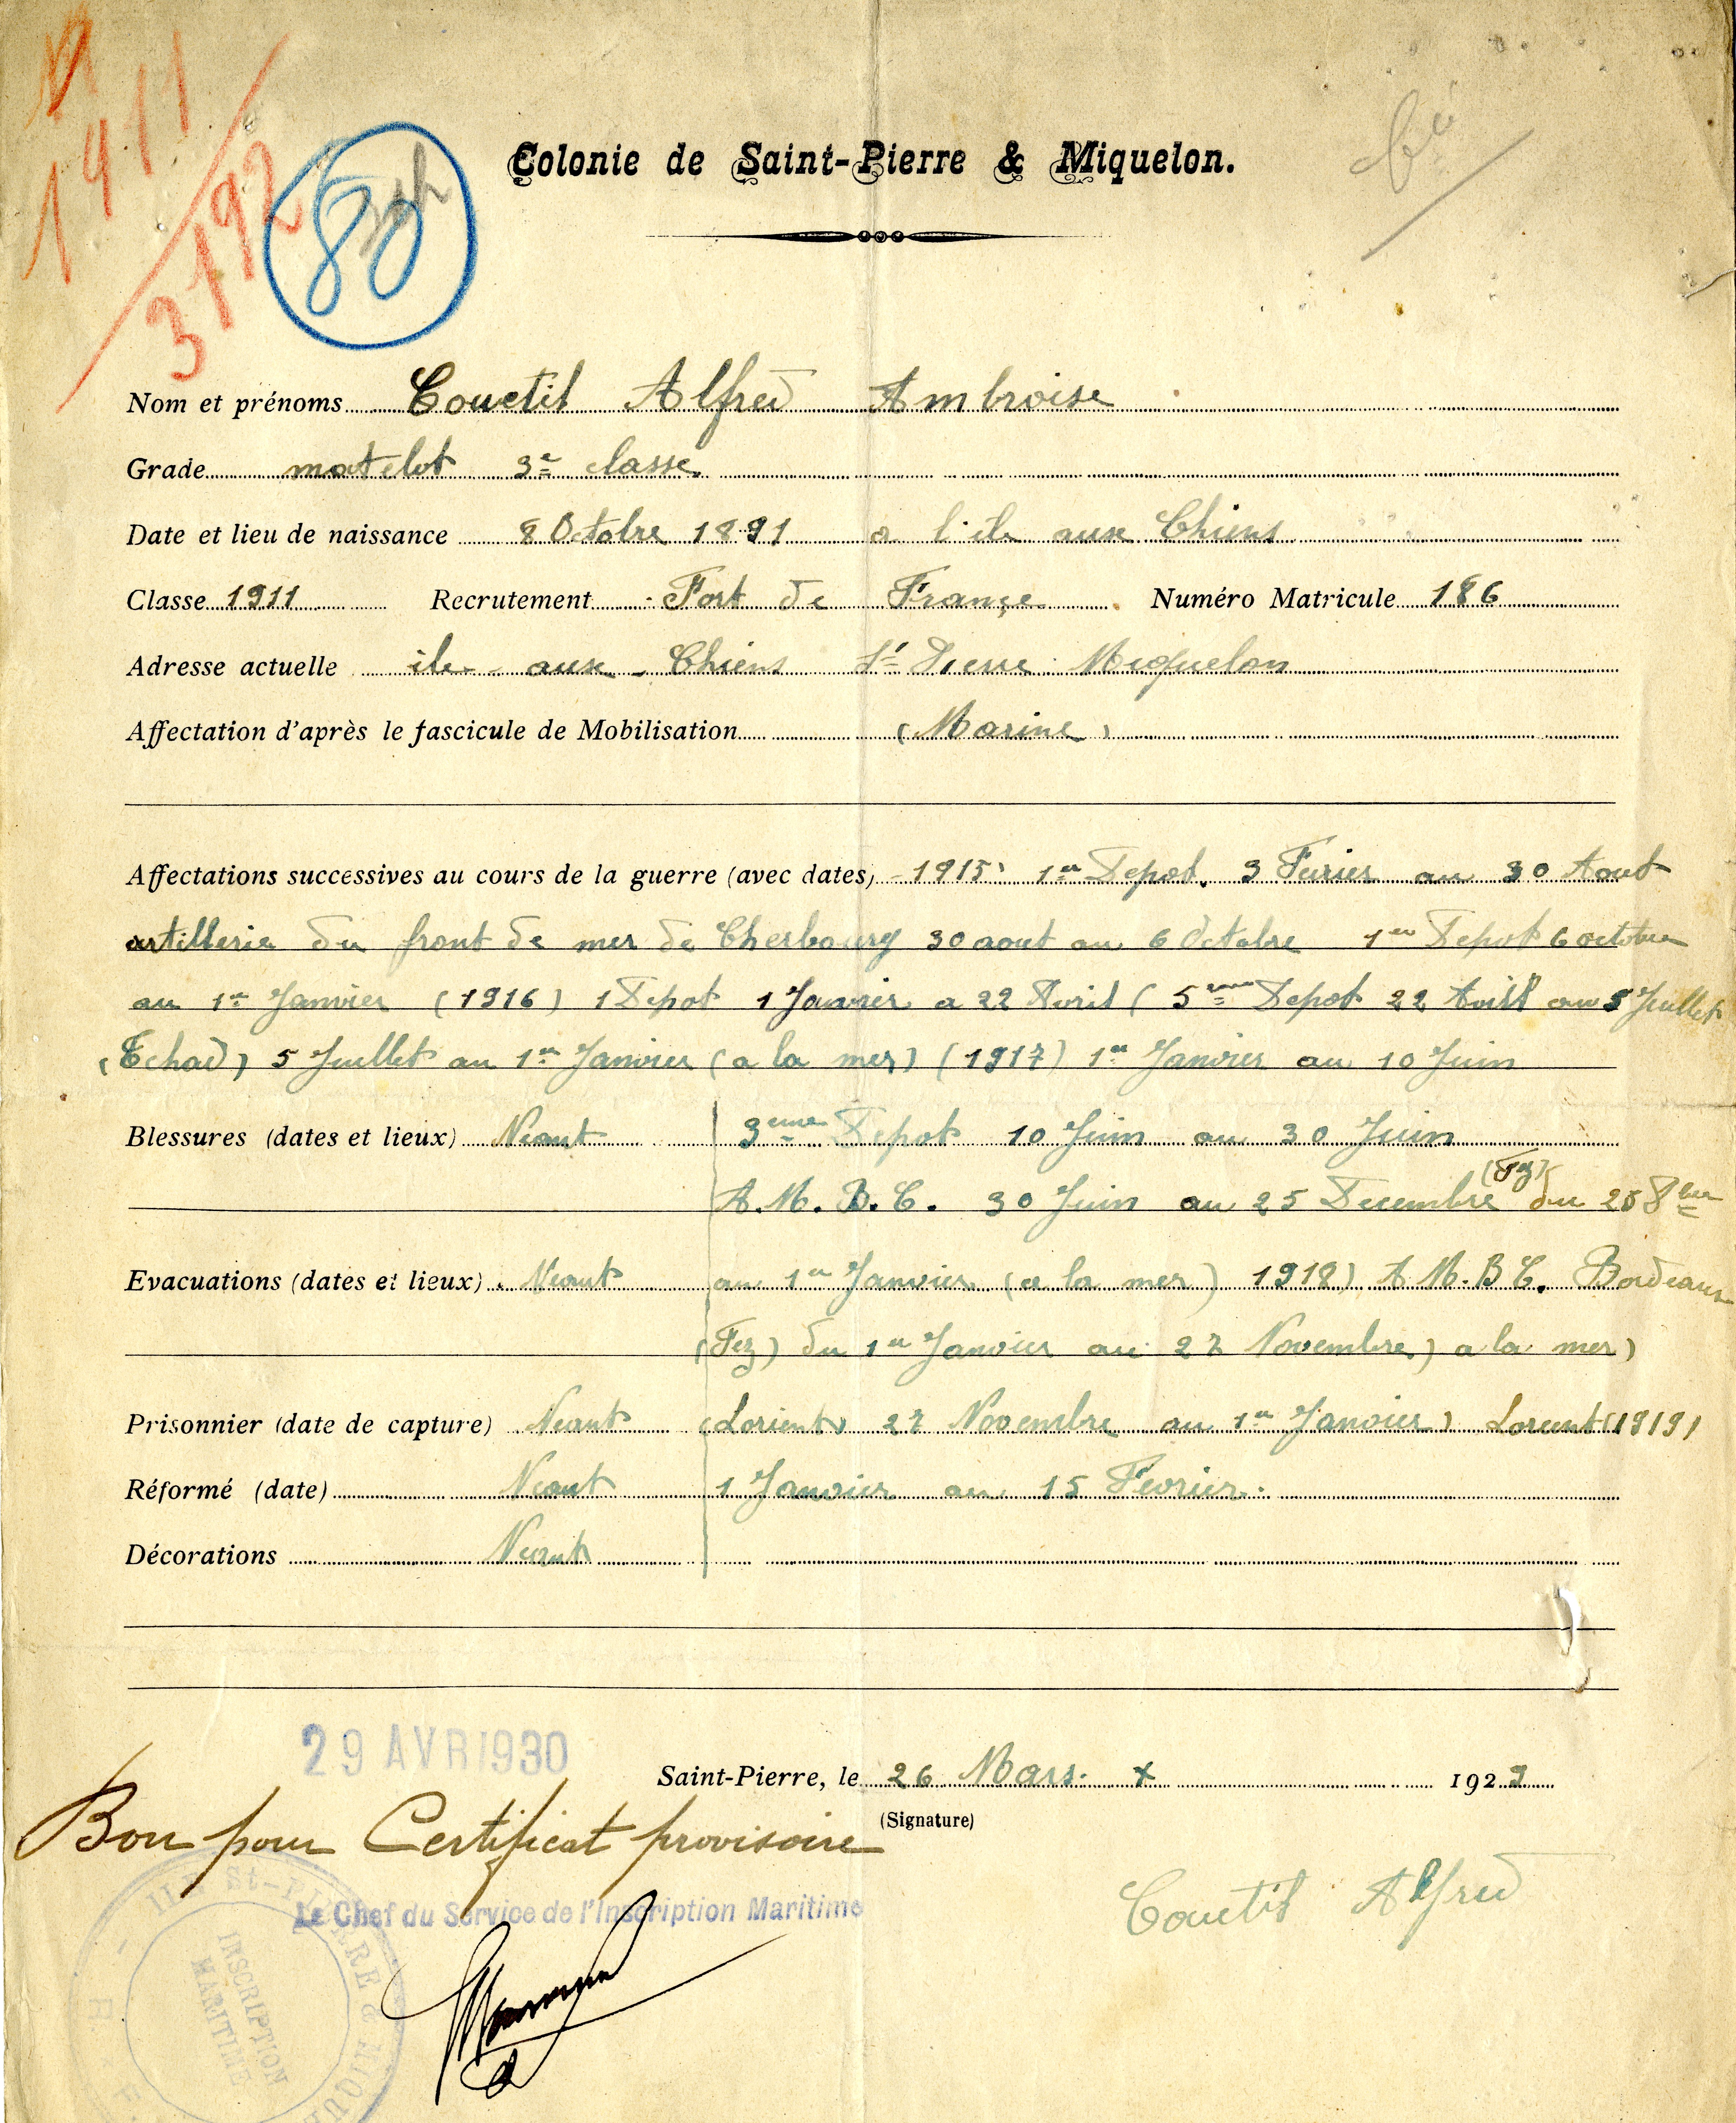 1911
3192
80
Colonie de Saint-Pierre & Miquelon.
Nom et prénoms Couetil Alfred Ambroise
Grade matelot 3e classe
Date et lieu de naissance 8 Octobre 1891 a l'ile aux Chiens
Classe 1911 Recrutement Fort de France Numéro Matricule 186
Adresse actuelle ile aux Chiens St Pierre Miquelon
Affectation d'après le fascicule de Mobilisation (Marine)
Affectations successives au cours de la guerre (avec dates) 1915 1er Depot. 3 Fevrier au 30 Aout
artillerie du front de mer de Cherbourg 30 aout au 6 Octobre 1er Depot 6 octobre
au 1er Janvier (1916) 1 Depot 1 Janvier a 22 Avril (5eme Depot 22 Avril au 5 Juillet
(Tchad) 5 Juillet au 1er Janvier (a la mer) (1917) 1er Janvier au 10 Juin
Blessures (dates et lieux) Neant 3eme Depot 10 Juin au 30 Juin
A.M.B.C. 30 Juin au 25 Decembre (Fez) du 25 8bre
Evacuations (dates et lieux) Neant au 1er Janvier (a la mer) 1918) A.M.B.C. Bordeaux
(Fez) du 1er Janvier au 27 Novembre) a la mer)
Prisonnier (date de capture) Neant (Lorient) 27 Novembre au 1er Janvier) Lorient (1919)
Réformé (date) Neant 1 Janvier au 15 Fevrier.
Décorations Neant
29 AVR 1930
Saint-Pierre, le 26 Mars x 1929
(Signature)
Bon pour Certificat provisoire
Le Chef du Service de l'Inscription Maritime
Couetil Alfred
St-PIERRE & MIQU
INSCRIPTION
MARITIME